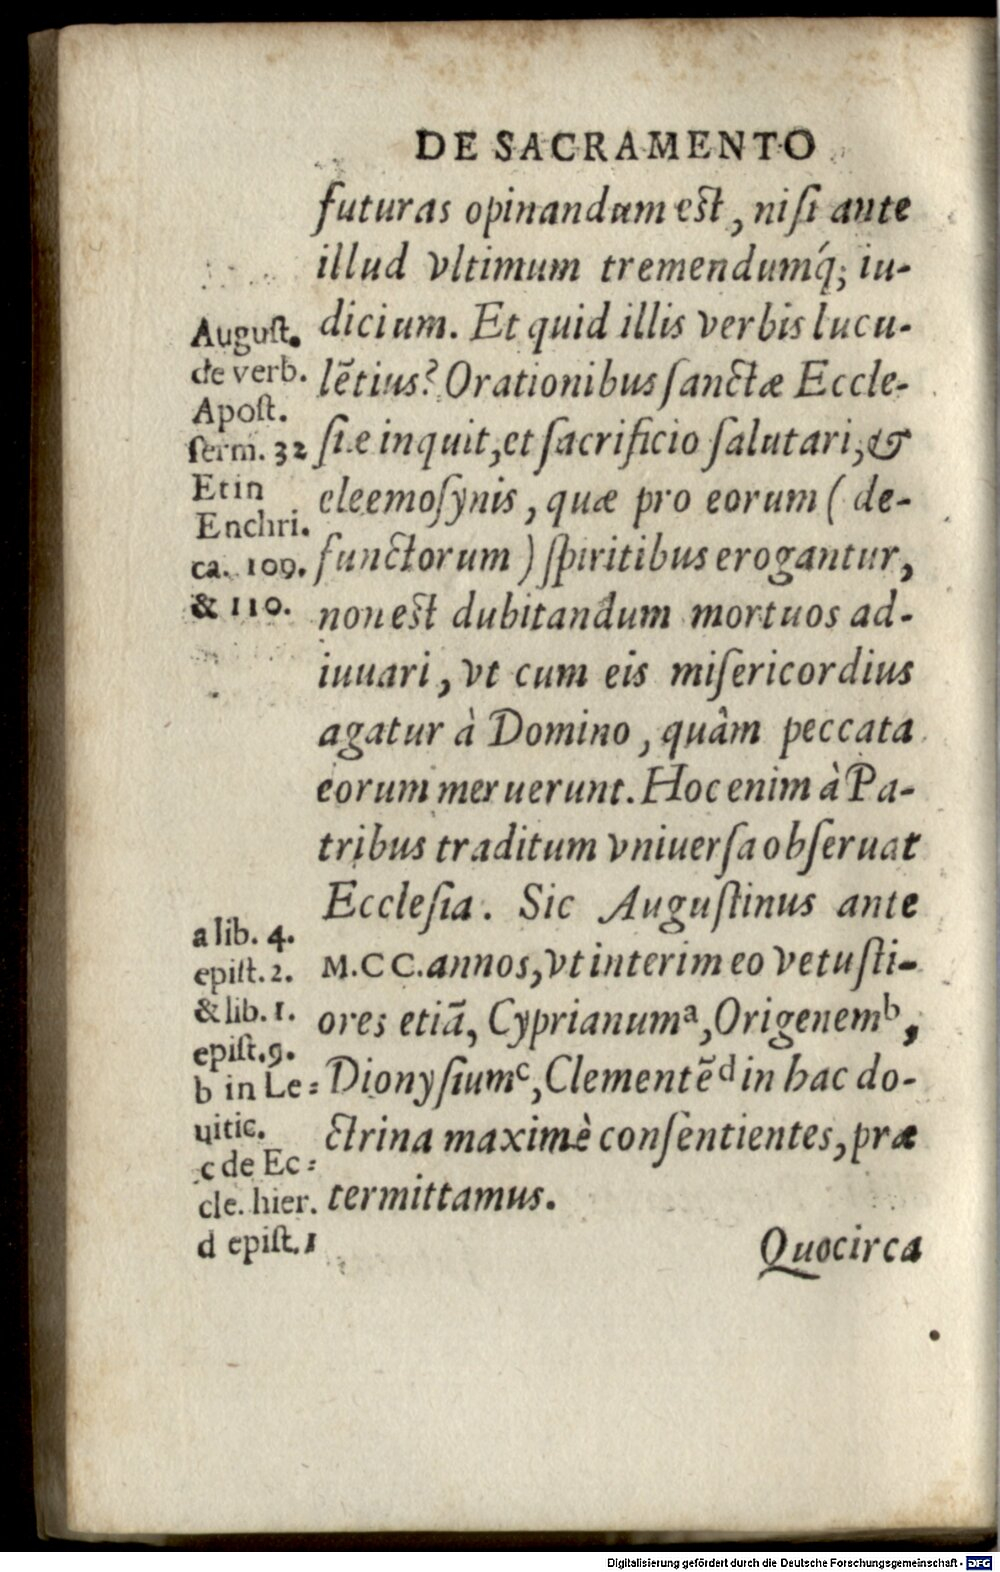 DE SACRAMENTO
futuras opinandum est, nisi ante
illud vltimum tremendumq́; iu-
dicium. Et quid illis verbis lucu-
lẽtius? Orationibus sanctæ Eccle-
siæ inquit, et sacrificio salutari, &
eleemosynis, quæ pro eorum (de-
functorum) spiritibus erogantur,
non est dubitandum mortuos ad-
iuuari, vt cum eis misericordius
agatur à Domino, quâm peccata
eorum meruerunt. Hoc enim à Pa-
tribus traditum vniuersa obseruat
Ecclesia. Sic Augustinus ante
M.CC. annos, vt interim eo vetusti-
ores etiã, Cyprianum a, Origenem b,
Dionysium c, Clementẽ d in hac do-
ctrina maximè consentientes, præ
termittamus.
Quocirca
August.
de verb.
Apost.
serm. 32
Et in
Enchri.
ca. 109.
& 110.
a lib. 4.
epist. 2.
& lib. 1.
epist. 9.
b in Le-
uitic.
c de Ec-
cle. hier.
d epist. 1
Digitalisierung gefördert durch die Deutsche Forschungsgemeinschaft - DFG